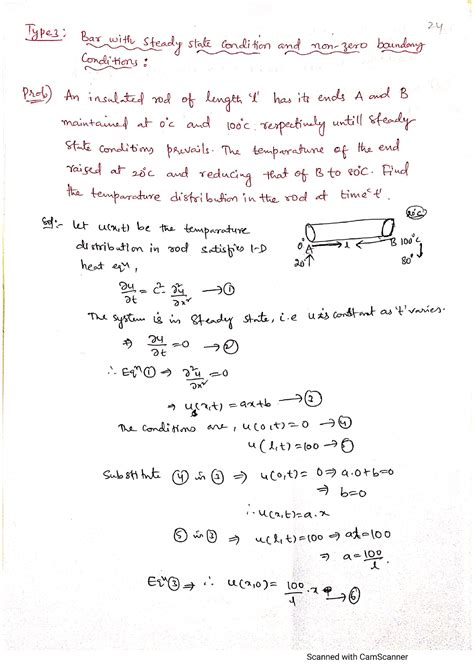 24
Type3: Bar with Steady state Condition and non-zero boundary
Conditions:
Prob) An insulated rod of length 'l' has its ends A and B
maintained at 0°c and 100°c respectively untill steady
state conditions prevails. The temparature of the end
raised at 20°c and reducing that of B to 80°C. Find
the temparature distribution in the rod at time 't'.
Sol:- Let u(x,t) be the temparature
distribution in rod satisfies 1-D
heat eqⁿ,
20°C
0° A l B 100°C
20° 80°
∂u/∂t = c² ∂²u/∂x² → ①
The system is in Steady state, i.e u is constant as 't' varies.
⇒ ∂u/∂t = 0 → ②
∴ Eqⁿ ① ⇒ ∂²u/∂x² = 0
⇒ u(x,t) = ax+b → ③
The conditions are, u(0,t) = 0 → ④
u(l,t) = 100 → ⑤
Substitute ④ in ③ ⇒ u(0,t) = 0 ⇒ a.0+b=0
⇒ b=0
∴ u(x,t) = a.x
⑤ in ③ ⇒ u(l,t) = 100 ⇒ al=100
⇒ a = 100/l.
Eqⁿ ③ ⇒ ∴ u(x,0) = 100/l .x → ⑥
Scanned with CamScanner